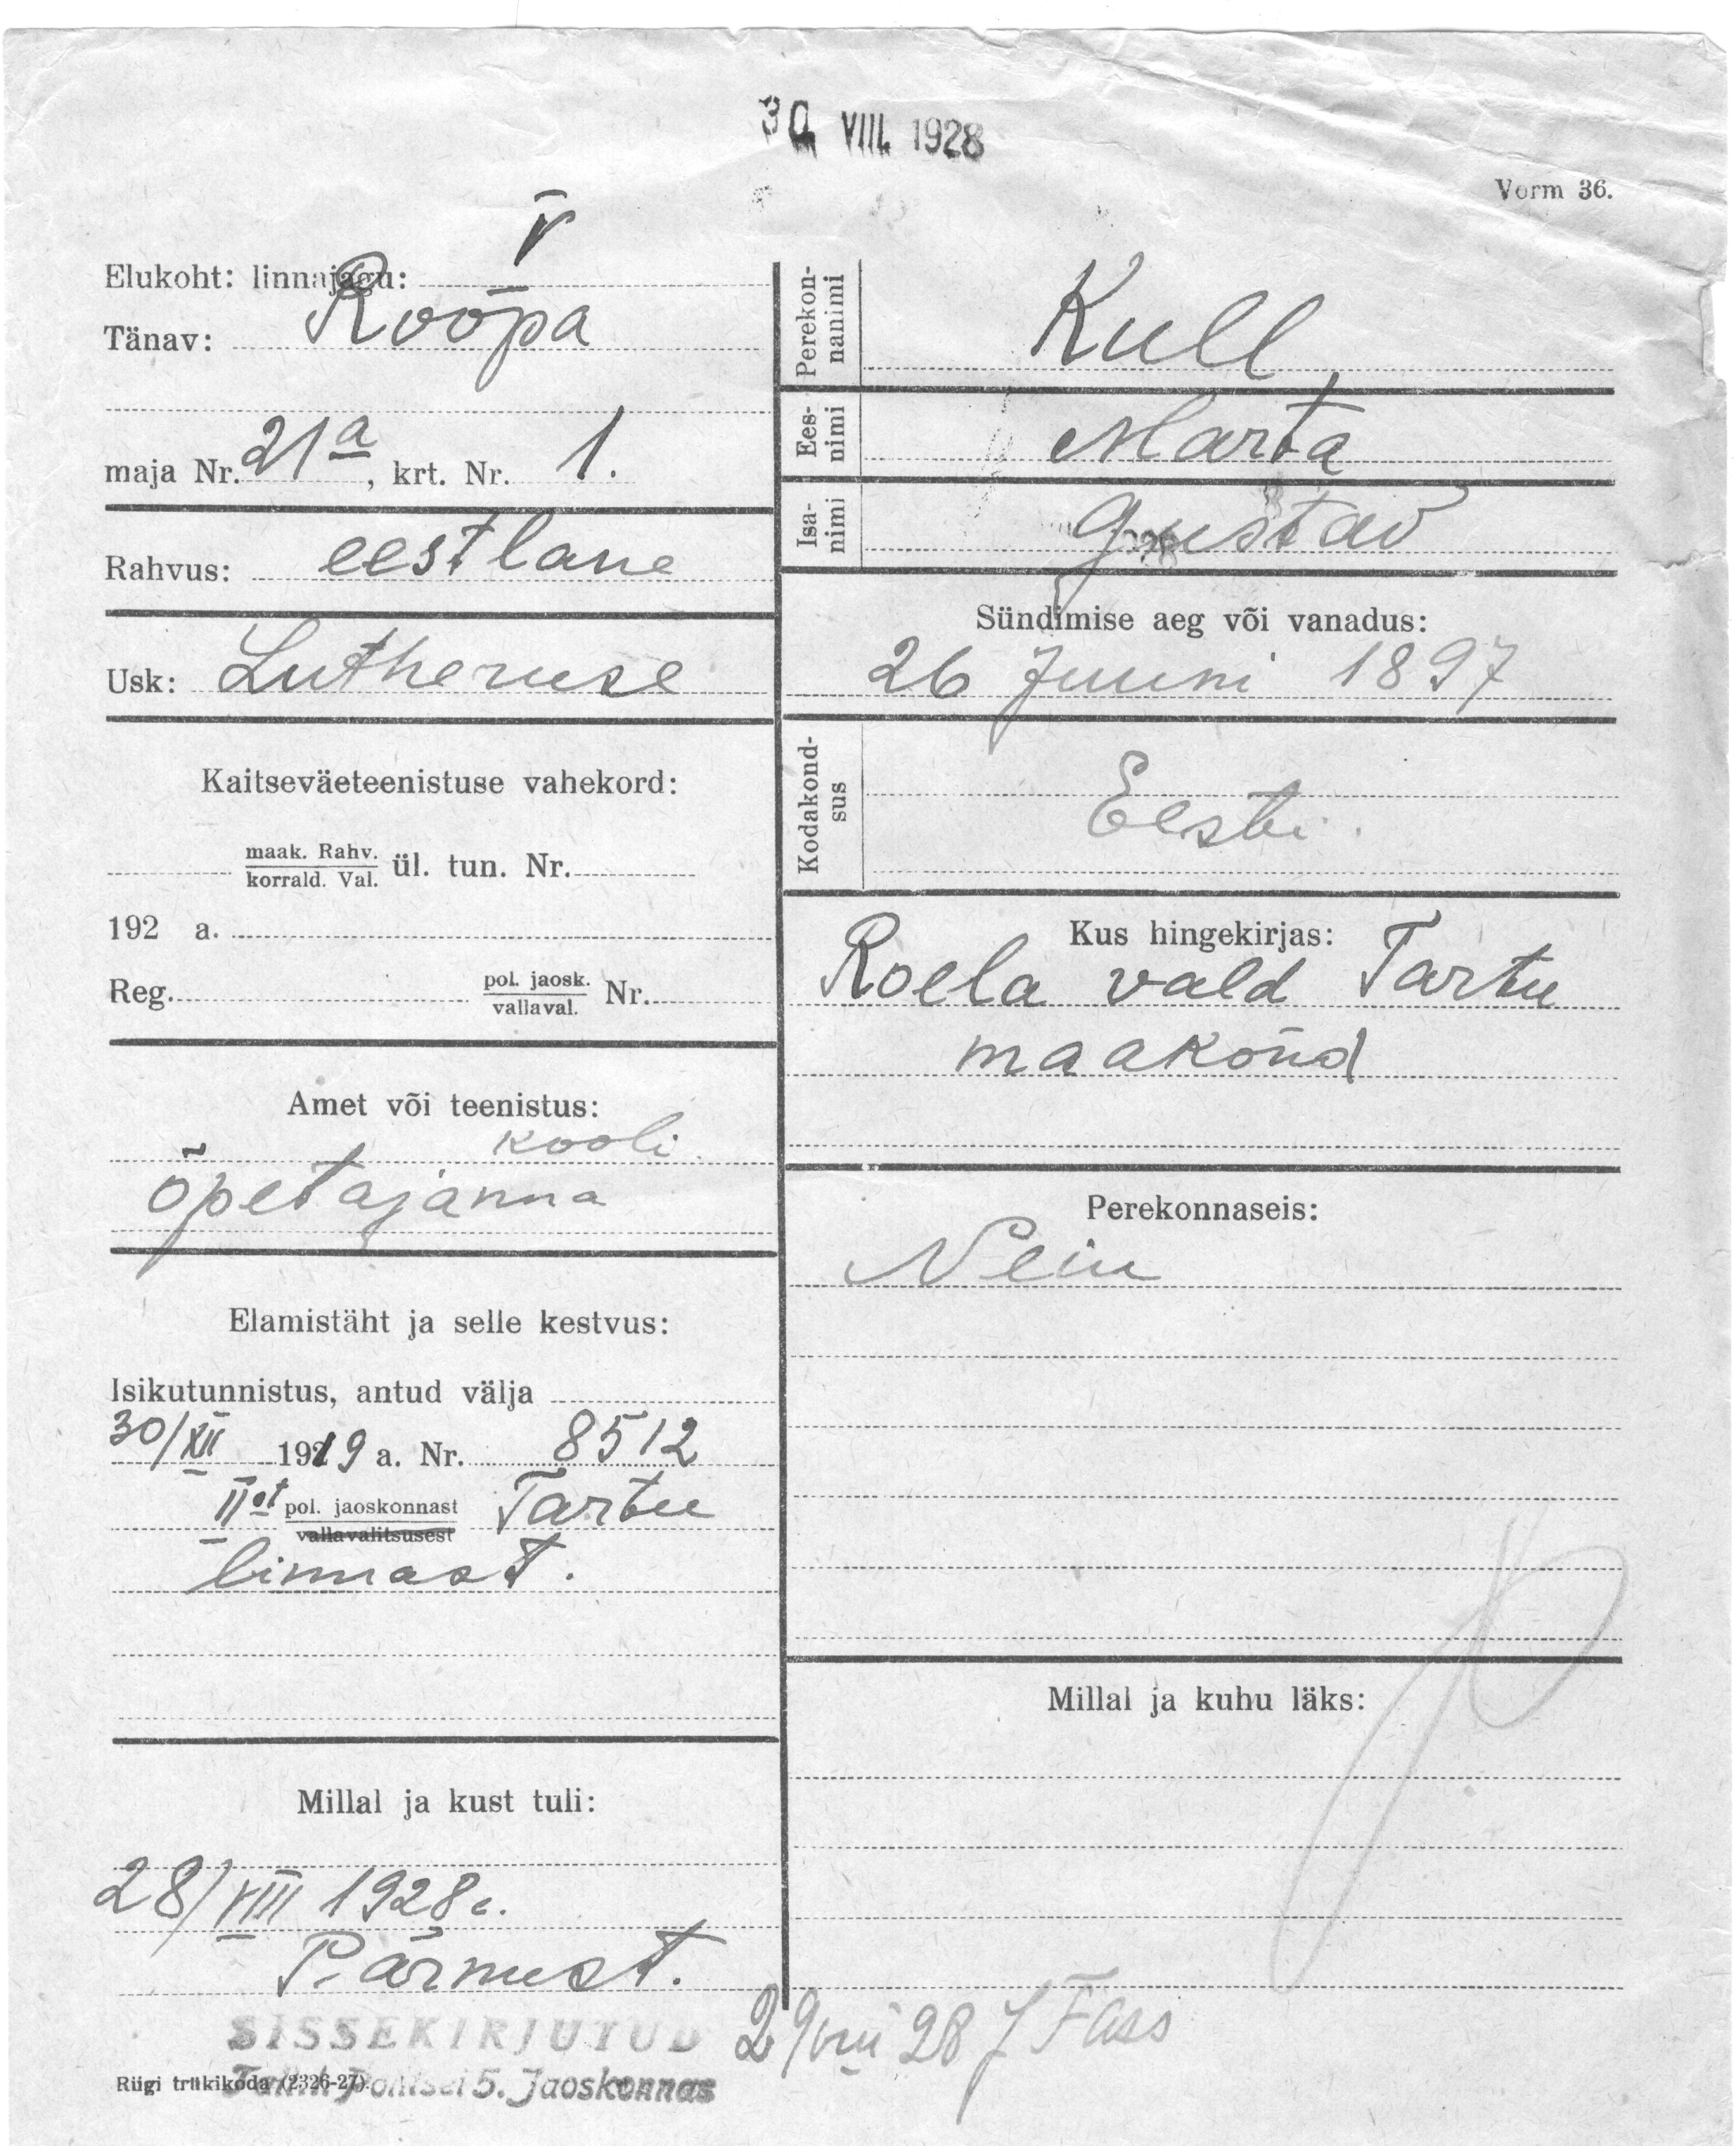 30 VIII. 1928
Vorm 36.
V
Elukoht: linnajagu:
Tänav: Roopa
maja Nr. 21a, krt. Nr. 1.
Rahvus: eestlane
Usk: Lutheruse
Kaitseväeteenistuse vahekord:
maak. Rahv.
korrald. Val. ül. tun. Nr.
192 a.
Reg. pol. jaosk.
vallaval. Nr.
Amet või teenistus:
kooli
õpetajanna
Elamistäht ja selle kestvus:
Isikutunnistus, antud välja
30/XII 1919 a. Nr. 8512
IIst pol. jaoskonnast Tartu
vallavalitsusest
linnast.
Millal ja kust tuli:
28/VIII 1928.
Pärnust.
SISSEKIRJUTUD
Politsei 5. Jaoskonnas
Riigi trükikoda (2326-27).
Perekon-
nanimi Kull
Ees-
nimi Marta
Isa-
nimi Gustav
Sündimise aeg või vanadus:
26 Juuni 1897
Kodakond-
sus Eesti.
Kus hingekirjas:
Roela vald Tartu
maakond
Perekonnaseis:
Neiu
Millal ja kuhu läks:
29 VIII 28